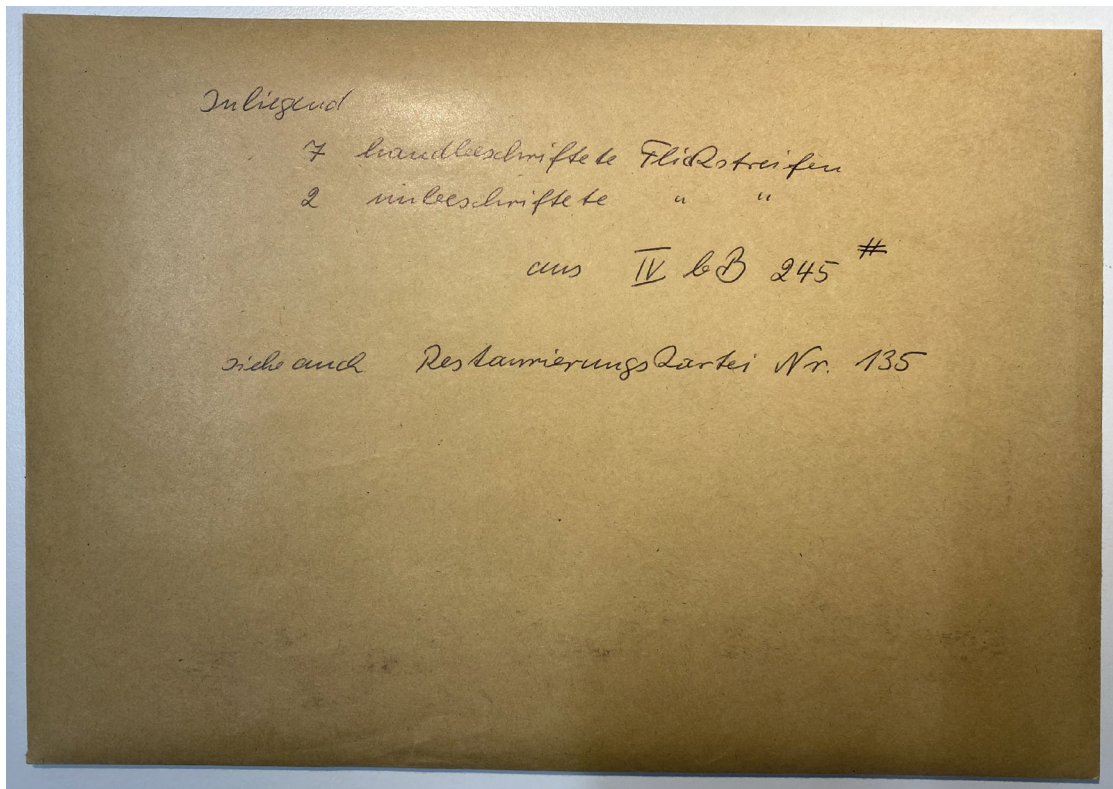 Inliegend
7 handbeschriftete Flickstreifen
2 unbeschriftete " "
aus IV b B 245 #
siehe auch Restaurierungskartei Nr. 135